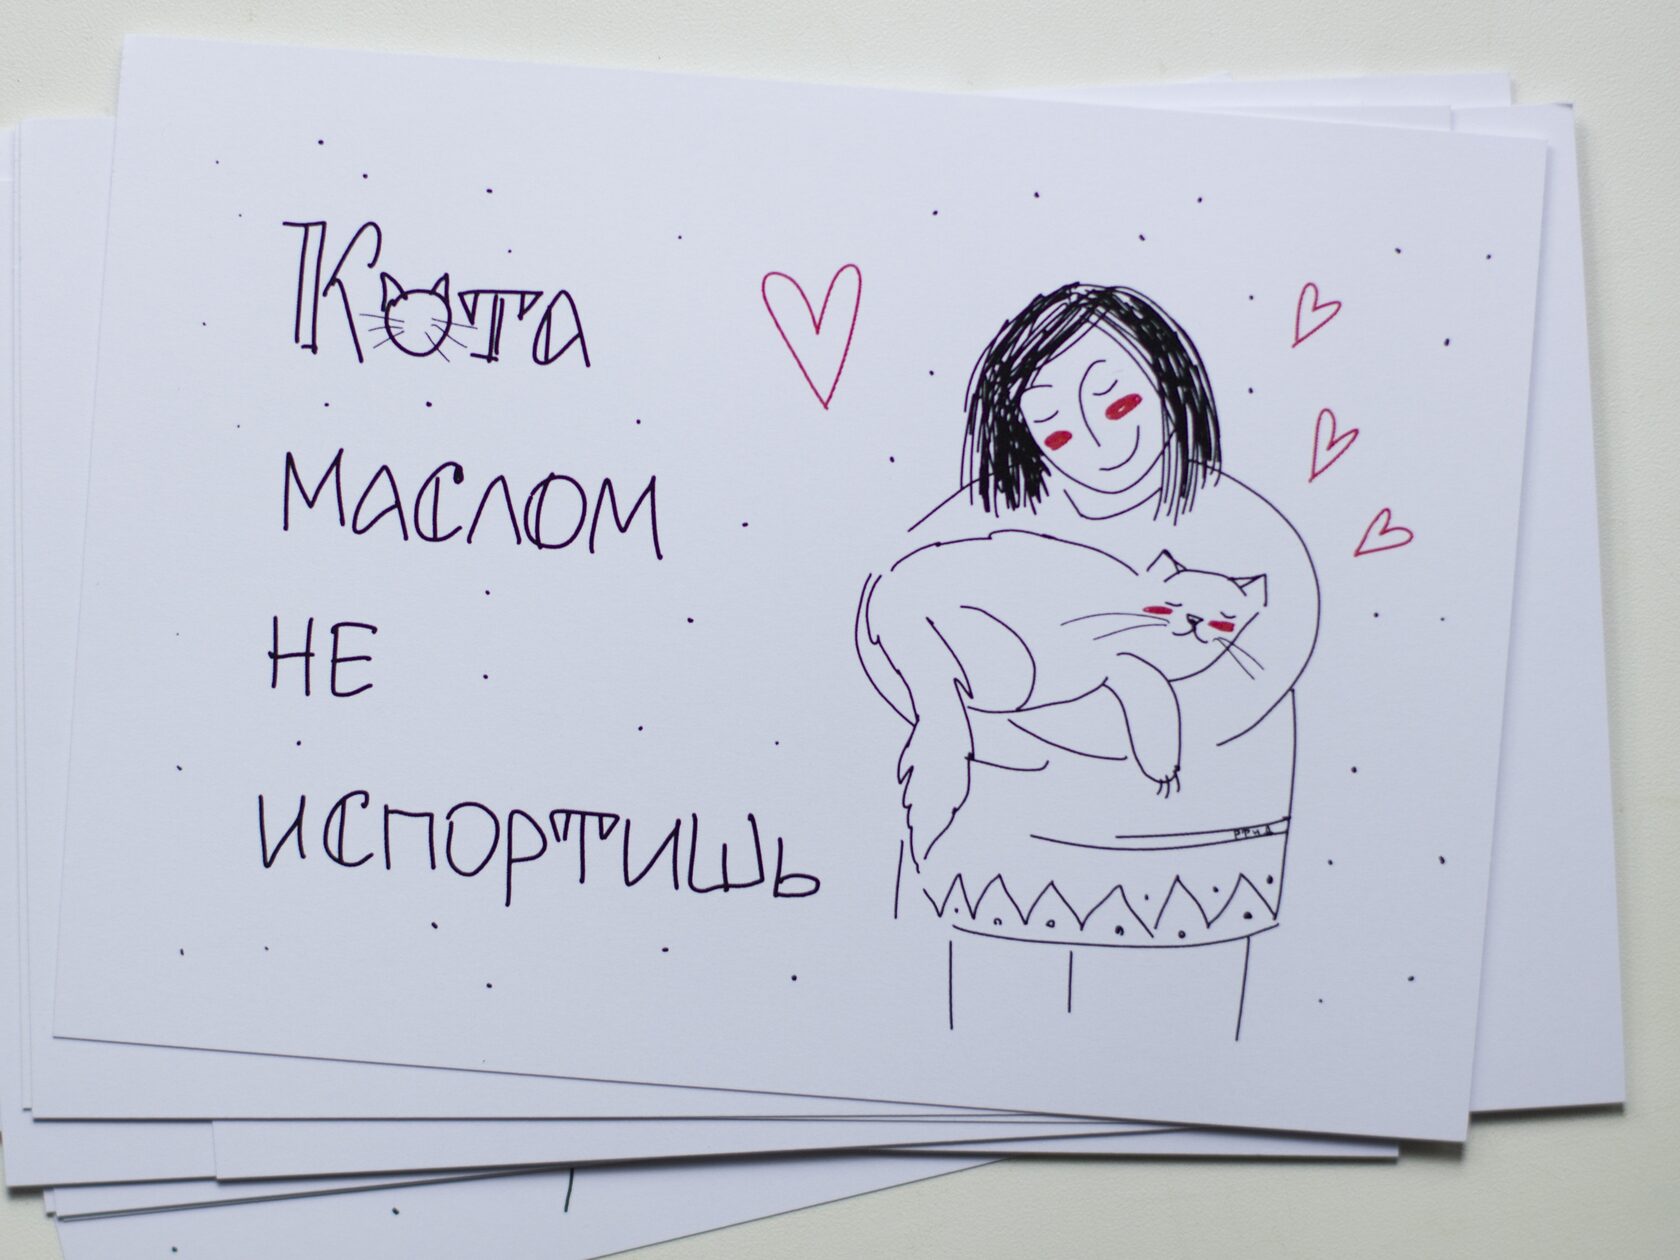 Кота
маслом
не
испортишь